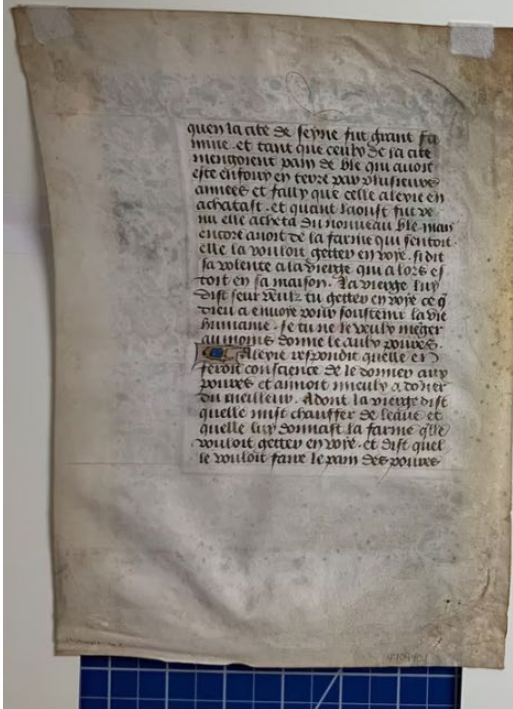 quen la cite de seyne fut grant fa
mine. et tant que ceulx de la cite
mengoient pain de ble qui auoit
este enfouy en terre par plusieurs
annees et fally que celle alexie en
achatast. et quant laoust fut ve
nu elle acheta du nouueau ble. mais
encore auoit de la farine qui sentoit
elle la vouloit getter en voye. si dit
sa volente a la vierge qui a lors es
toit en sa maison. La vierge luy
dist seur veulz tu getter en voye ce q̄
dieu a enuoye pour soustenir la vie
humaine. se tu ne le veulx mēger
au moins donne le aulx poures.
Alexie respondit quelle en
feroit conscience de le donner aux
poures et aimoit mieulx a dōner
du meilleur. Adont la vierge dist
quelle mist chauffer de leaue et
quelle luy donnast la farine q̄lle
vouloit getter en voye. et dist quel
le vouloit faire le pain des poures